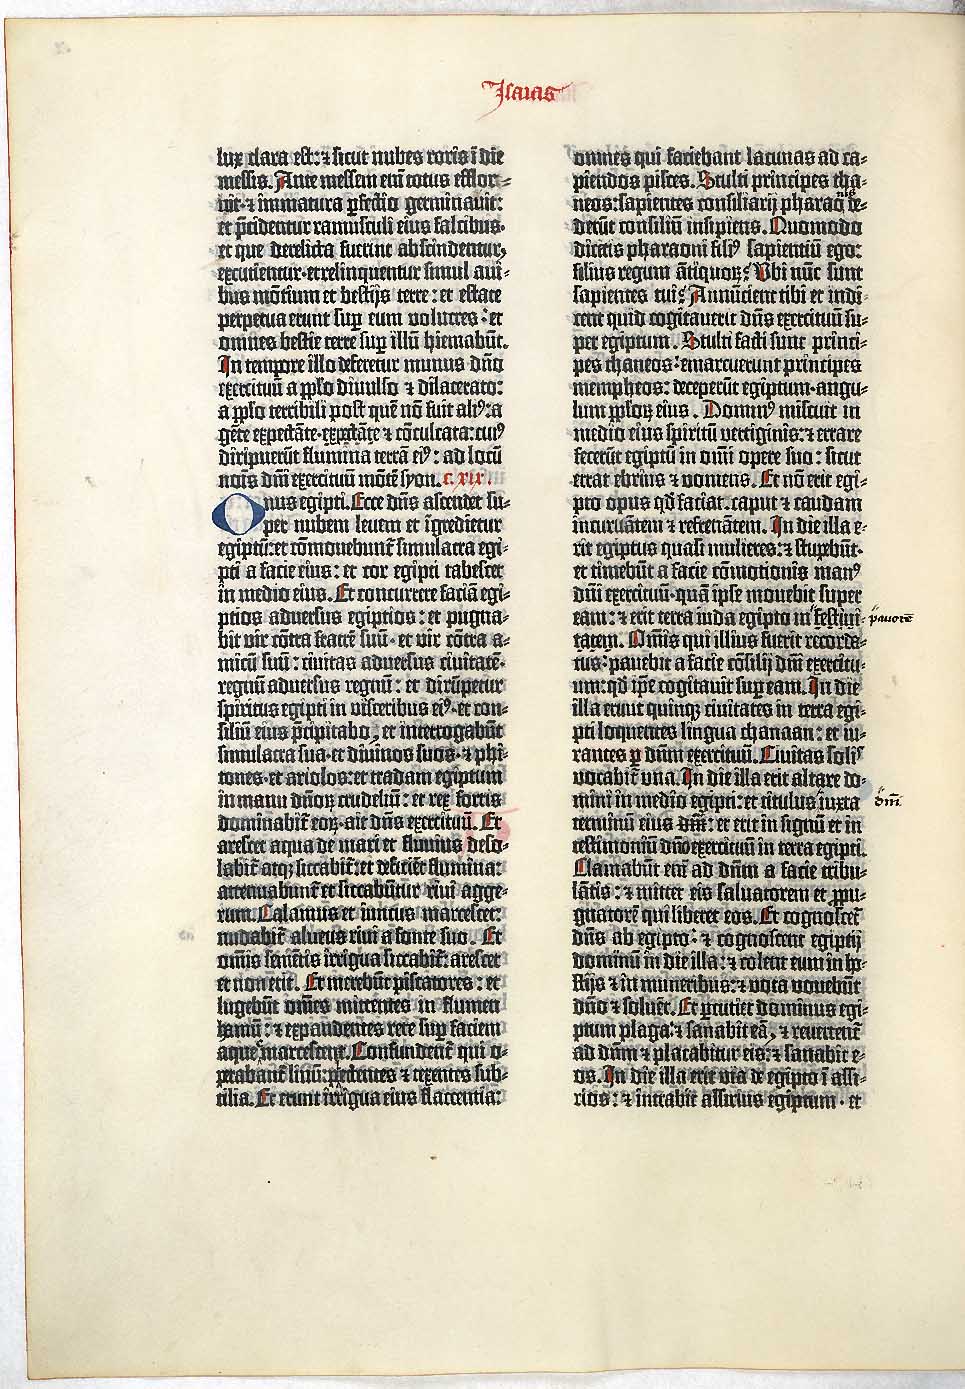 Isaias
lux clara est: ⁊ sicut nubes roris ī die
messis. Ante messem em̄ totus efflor-
uit· ⁊ immatura ꝑfectio germinavit:
et p̄cidentur ramusculi eius falcibus·
et que derelicta fuerint abscindentur,
excutientur· et relinquentur simul avi-
bus mōtium et bestijs terre: et estate
perpetua erunt suꝑ eum volucres: et
omnes bestie terre suꝑ illū hiemabūt.
In tempore illo deferetur munus dn̄o
exercituū a pp̄lo divulso ⁊ dilacerato:
a pp̄lo terribili post quē nō fuit aliꝰ: a
gēte expectāte· expectāte ⁊ cōculcata: cuiꝰ
diripuerūt flumina terrā eiꝰ: ad locū
nois dn̄i exercituū mōtē syon. c. xix.
Onus egipti. Ecce dn̄s ascendet su-
per nubem levem et īgredietur
egiptū: et cōmovebunt̄ simulacra egi-
pti a facie eius: et cor egipti tabescet
in medio eius. Et concurrere faciā egi-
ptios adversus egiptios: et pugna-
bit vir cōtra fratrē suū· et vir cōtra a-
micū suū: civitas adversus civitatē·
regnū adversus regnū: et dirūpetur
spiritus egipti in visceribus eiꝰ· et con-
siliū eius p̄cipitabo, et interrogabūt
simulacra sua· et divinos suos· ⁊ phi-
tones· et ariolos: et tradam egiptum
in manu dn̄oꝝ crudeliū: et rex fortis
dominabit̄ eoꝝ· ait dn̄s exercituū. Et
arescet aqua de mari et fluvius deso-
labit̄ atqꝫ siccabit̄: et deficiēt flumina:
attenuabunt̄ et siccabūtur rivi agge-
rum. Calamus et iuncus marcescet:
nudabit̄ alveus rivi a fonte suo. Et
omīs semētis irrigua siccabit̄: arescet
et non erit. Et merebūt piscatores: et
lugebūt om̄es mittentes in flumen
hamū: ⁊ expandentes rete suꝑ faciem
aque marcescent. Confundent̄ qui o-
perabant̄ linū: pectentes ⁊ texentes sub-
tilia. Et erunt irrigua eius flaccentia:
omnes qui faciebant lacunas ad ca-
piendos pisces. Stulti principes tha-
neos: sapientes consiliarij pharaonis de-
derūt consiliū insipiens. Quomodo
dicetis pharaoni filiꝰ sapientiū ego:
filius regum ātiquoꝝ? Ubi nūc sunt
sapientes tui? Annūcient tibi et indi-
cent quid cogitaverit dn̄s exercituū su-
per egiptum. Stulti facti sunt princi-
pes thaneos: emarcuerunt principes
mempheos: deceperūt egiptum· angu-
lum pp̄loꝝ eius. Domīnꝰ miscuit in
medio eius spiritū vertiginis: ⁊ errare
fecerūt egiptū in omī opere suo: sicut
errat ebrius ⁊ vomens. Et nō erit egi-
pto opus qd̄ faciat· caput ⁊ caudam
incurvātem ⁊ refrenātem. In die illa e-
rit egiptus quasi mulieres: ⁊ stupebūt·
et timebūt a facie cōmotionis manꝰ
dn̄i exercituū· quā ipse movebit super
eam: ⁊ erit terra iuda egipto in festivi-
pavorē
tatem. Omīs qui illius fuerit recorda-
tus: pavebit a facie cōsilij dn̄i exercitu-
um: qd̄ ip̄e cogitavit suꝑ eam. In die
illa erunt quinqꝫ civitates in terra egi-
pti loquentes lingua chanaan: et iu-
rantes ꝑ dn̄m exercituū. Civitas solis
vocabit̄ una. In die illa erit altare do-
mini in medio egipti: et titulus iuxta
dn̄i
terminū eius dn̄i: et erit in signū et in
testimoniū dn̄o exercituū in terra egipti.
Clamabūt em̄ ad dn̄m a facie tribu-
lātis: ⁊ mittet eis salvatorem et ꝓpu-
gnatorē qui liberet eos. Et cognoscet̄
dn̄s ab egipto: ⁊ cognoscent egiptij
dominū in die illa: ⁊ colent eum in ho-
stijs ⁊ in muneribus: ⁊ vota vovebūt
dn̄o ⁊ solvēt. Et ꝑcutiet dominus egi-
ptum plaga: ⁊ sanabit eā, ⁊ revertent̄
ad dn̄m ⁊ placabitur eis: ⁊ sanabit e-
os. In die illa erit via de egipto ī assi-
rios: ⁊ intrabit assirius egiptum· et